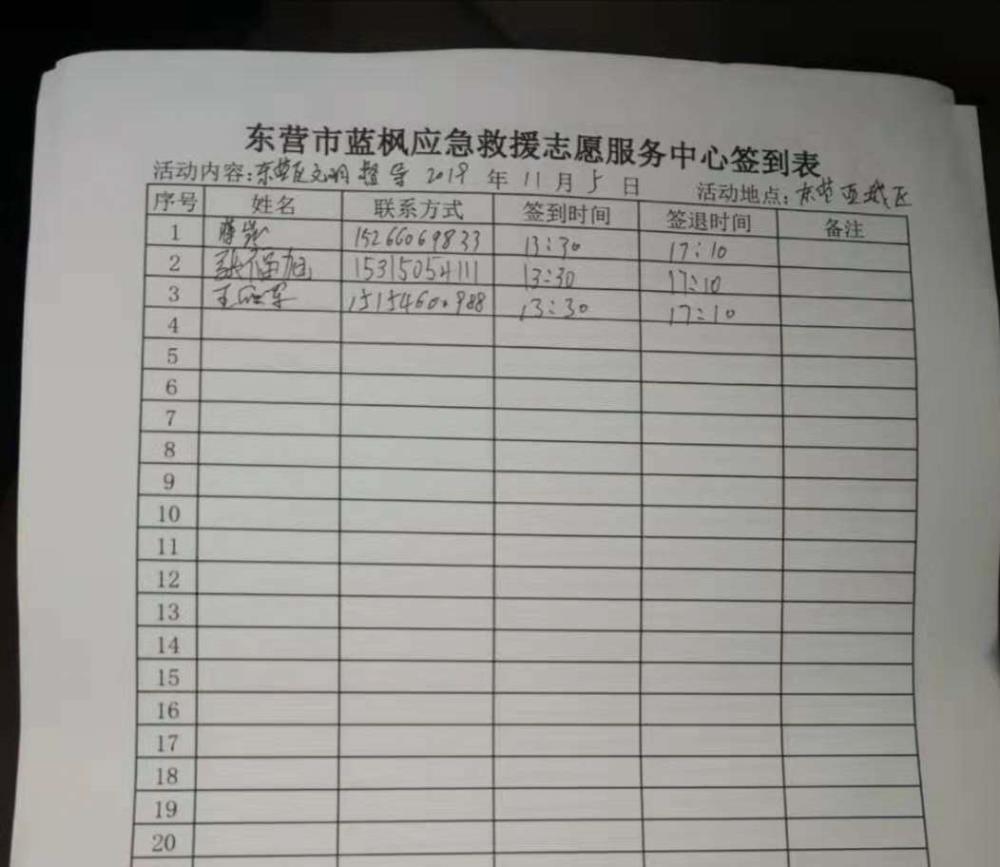 东营市蓝枫应急救援志愿服务中心签到表
活动内容:东营区文明督导 2019 年 11 月 5 日 活动地点:东营西城区
序号 姓名 联系方式 签到时间 签退时间 备注
1 15266069833 13:30 17:10
2 张福旭 15315054111 13:30 17:10
3 王 军 15154600988 13:30 17:10
4
5
6
7
8
9
10
11
12
13
14
15
16
17
18
19
20